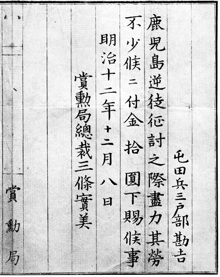 屯田兵三戸部勘吉
鹿児島逆徒征討之際盡力其勞
不少候ニ付金拾圓下賜候事
明治十二年十二月八日
賞勲局總裁三條實美
賞勲局